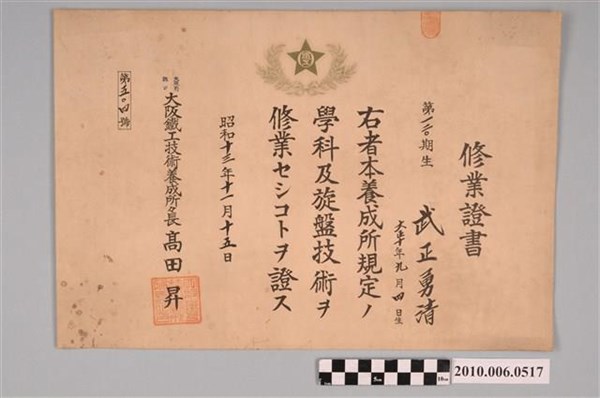 修業證書
第一二〇期生
武正勇清
大正十年九月四日生
右者本養成所規定ノ
學科及旋盤技術ヲ
修業セシコトヲ證ス
昭和十三年十一月十五日
大阪鐵工技術養成所々長 髙田昇
第五〇四號
5cm
10cm
2010.006.0517